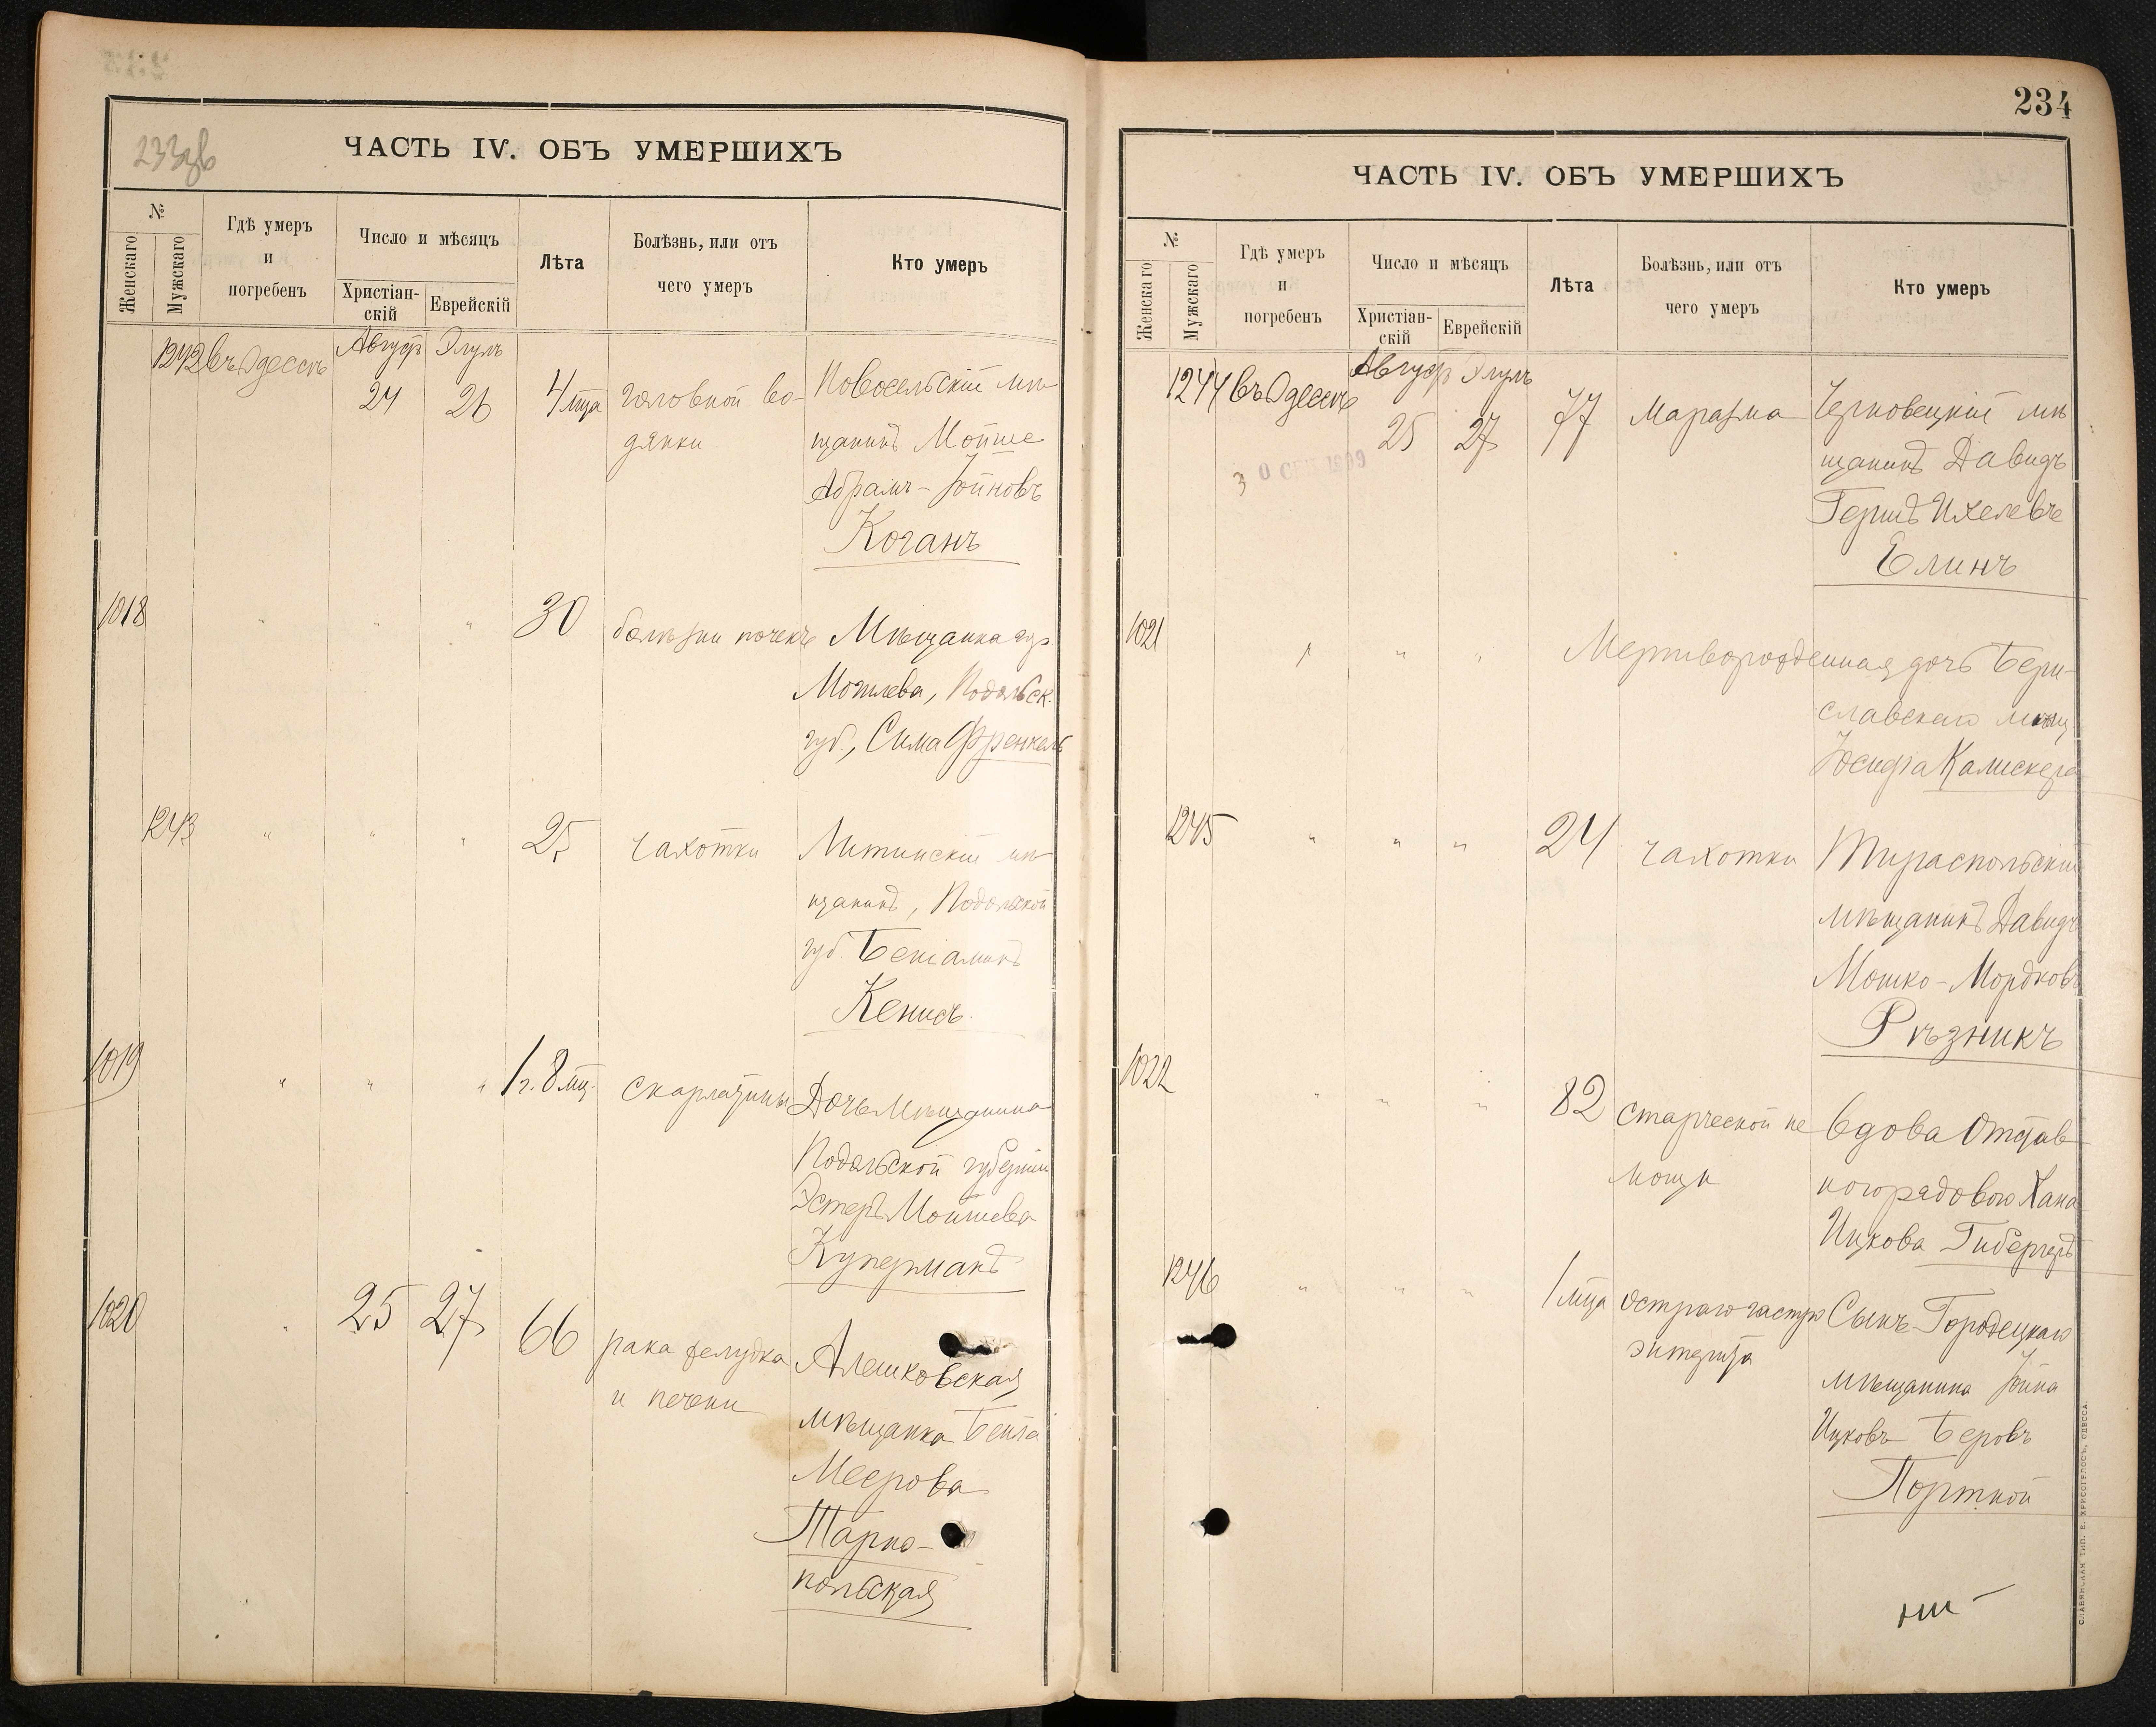 233об
ЧАСТЬ IV. ОБЪ УМЕРШИХЪ
№
Женскаго
Мужскаго
Гдѣ умеръ
и
погребенъ
Число и мѣсяцъ
Христіан-
скій
Еврейскій
Лѣта
Болѣзнь, или отъ
чего умеръ
Кто умеръ
1242 въ Одессѣ Август Элулъ
24 26 4 мца головной во- Новосельскій мѣ
дянки щанинъ Мойше
Абрамъ-Іойновъ
Коганъ
1018 " " " 30 болѣзни почекъ Мѣщанка гор.
Могилева, Подольск.
губ., Сима Френкель
1243 " " " 25 чахотки Литинскій мѣ
щанинъ, Подольской
губ. Беніаминъ
Кенисъ.
1019 " " " 1 г. 8 мц. скарлатины Дочь Мѣщанина
Подольской губерніи
Эстеръ Мойшева
Куперманъ
1020 " 25 27 66 рака желудка Алешковская
и печени мѣщанка Бейла
Меерова
Тарно-
польская
234
ЧАСТЬ IV. ОБЪ УМЕРШИХЪ
№
Женскаго
Мужскаго
Гдѣ умеръ
и
погребенъ
Число и мѣсяцъ
Христіан-
скій
Еврейскій
Лѣта
Болѣзнь, или отъ
чего умеръ
Кто умеръ
1244 въ Одессѣ Август Элулъ
25 27 77 маразма Черновецкій мѣ
щанинъ Давидъ
Гершъ Ихелевъ
Елинъ
30 СЕН 1909
1021 " " " Мертворожденная дочь Бери-
славскаго мѣщ
Іосифа Калискера
1245 " " " 24 чахотки Тираспольскій
мѣщанинъ Давидъ
Мошко-Мордковъ
Рѣзникъ
1022 " " " 82 старческой не вдова Отстав
мощи ного рядового Хана
Ицкова
1246 " " " 1 мца остраго гастро Сынъ Городецкаго
энтерита мѣщанина Іойна
Ицковъ Беровъ
Портной
СЛАВЯНСКАЯ ТИП. Е. ХРИСОГЕЛОСЪ, ОДЕССА.